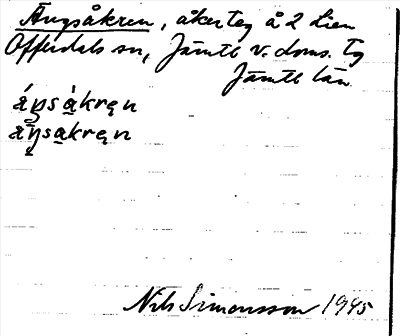 Ängsåkren, åkerteg å 2 Lien
Offerdals sn, Jämtl v. doms. tg
Jämtl län
áŋsa̱kręn
Nils Simonsson 1945